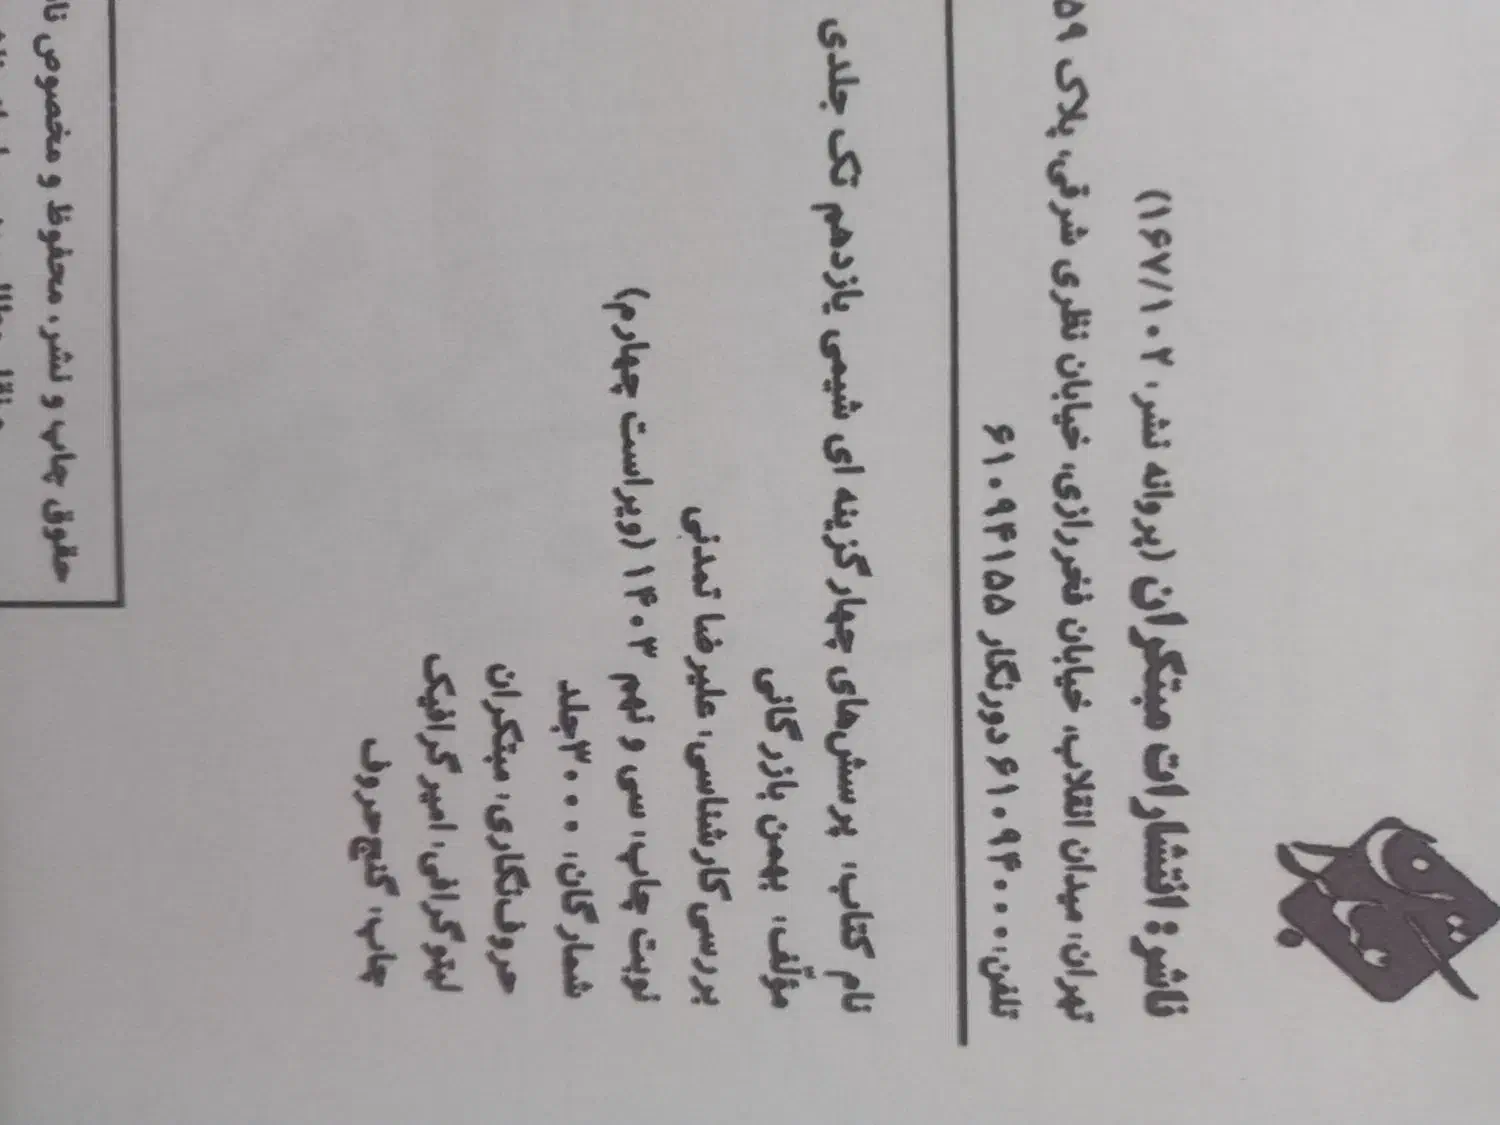 ناشر: انتشارات مبتکران (پروانه نشر، ۱۶۷/۱۰۲)
تهران، میدان انقلاب، خیابان فخررازی، خیابان نظری شرقی، پلاک ۵۹
تلفن، ۶۱۰۹۴۰۰۰ دورنگار ۶۱۰۹۴۱۵۵
نام کتاب، پرسش‌های چهارگزینه ای شیمی یازدهم تک جلدی
مؤلّف، بهمن بازرگانی
بررسی کارشناسی، علیرضا تمدنی
نوبت چاپ، سی و نهم ۱۴۰۳ (ویراست چهارم)
شمارگان، ۳۰۰۰جلد
حروف‌نگاری، مبتکران
لیتوگرافی، امیرگرافیک
چاپ، گنج‌حروف
حقوق چاپ و نشر، محفوظ و مخصوص